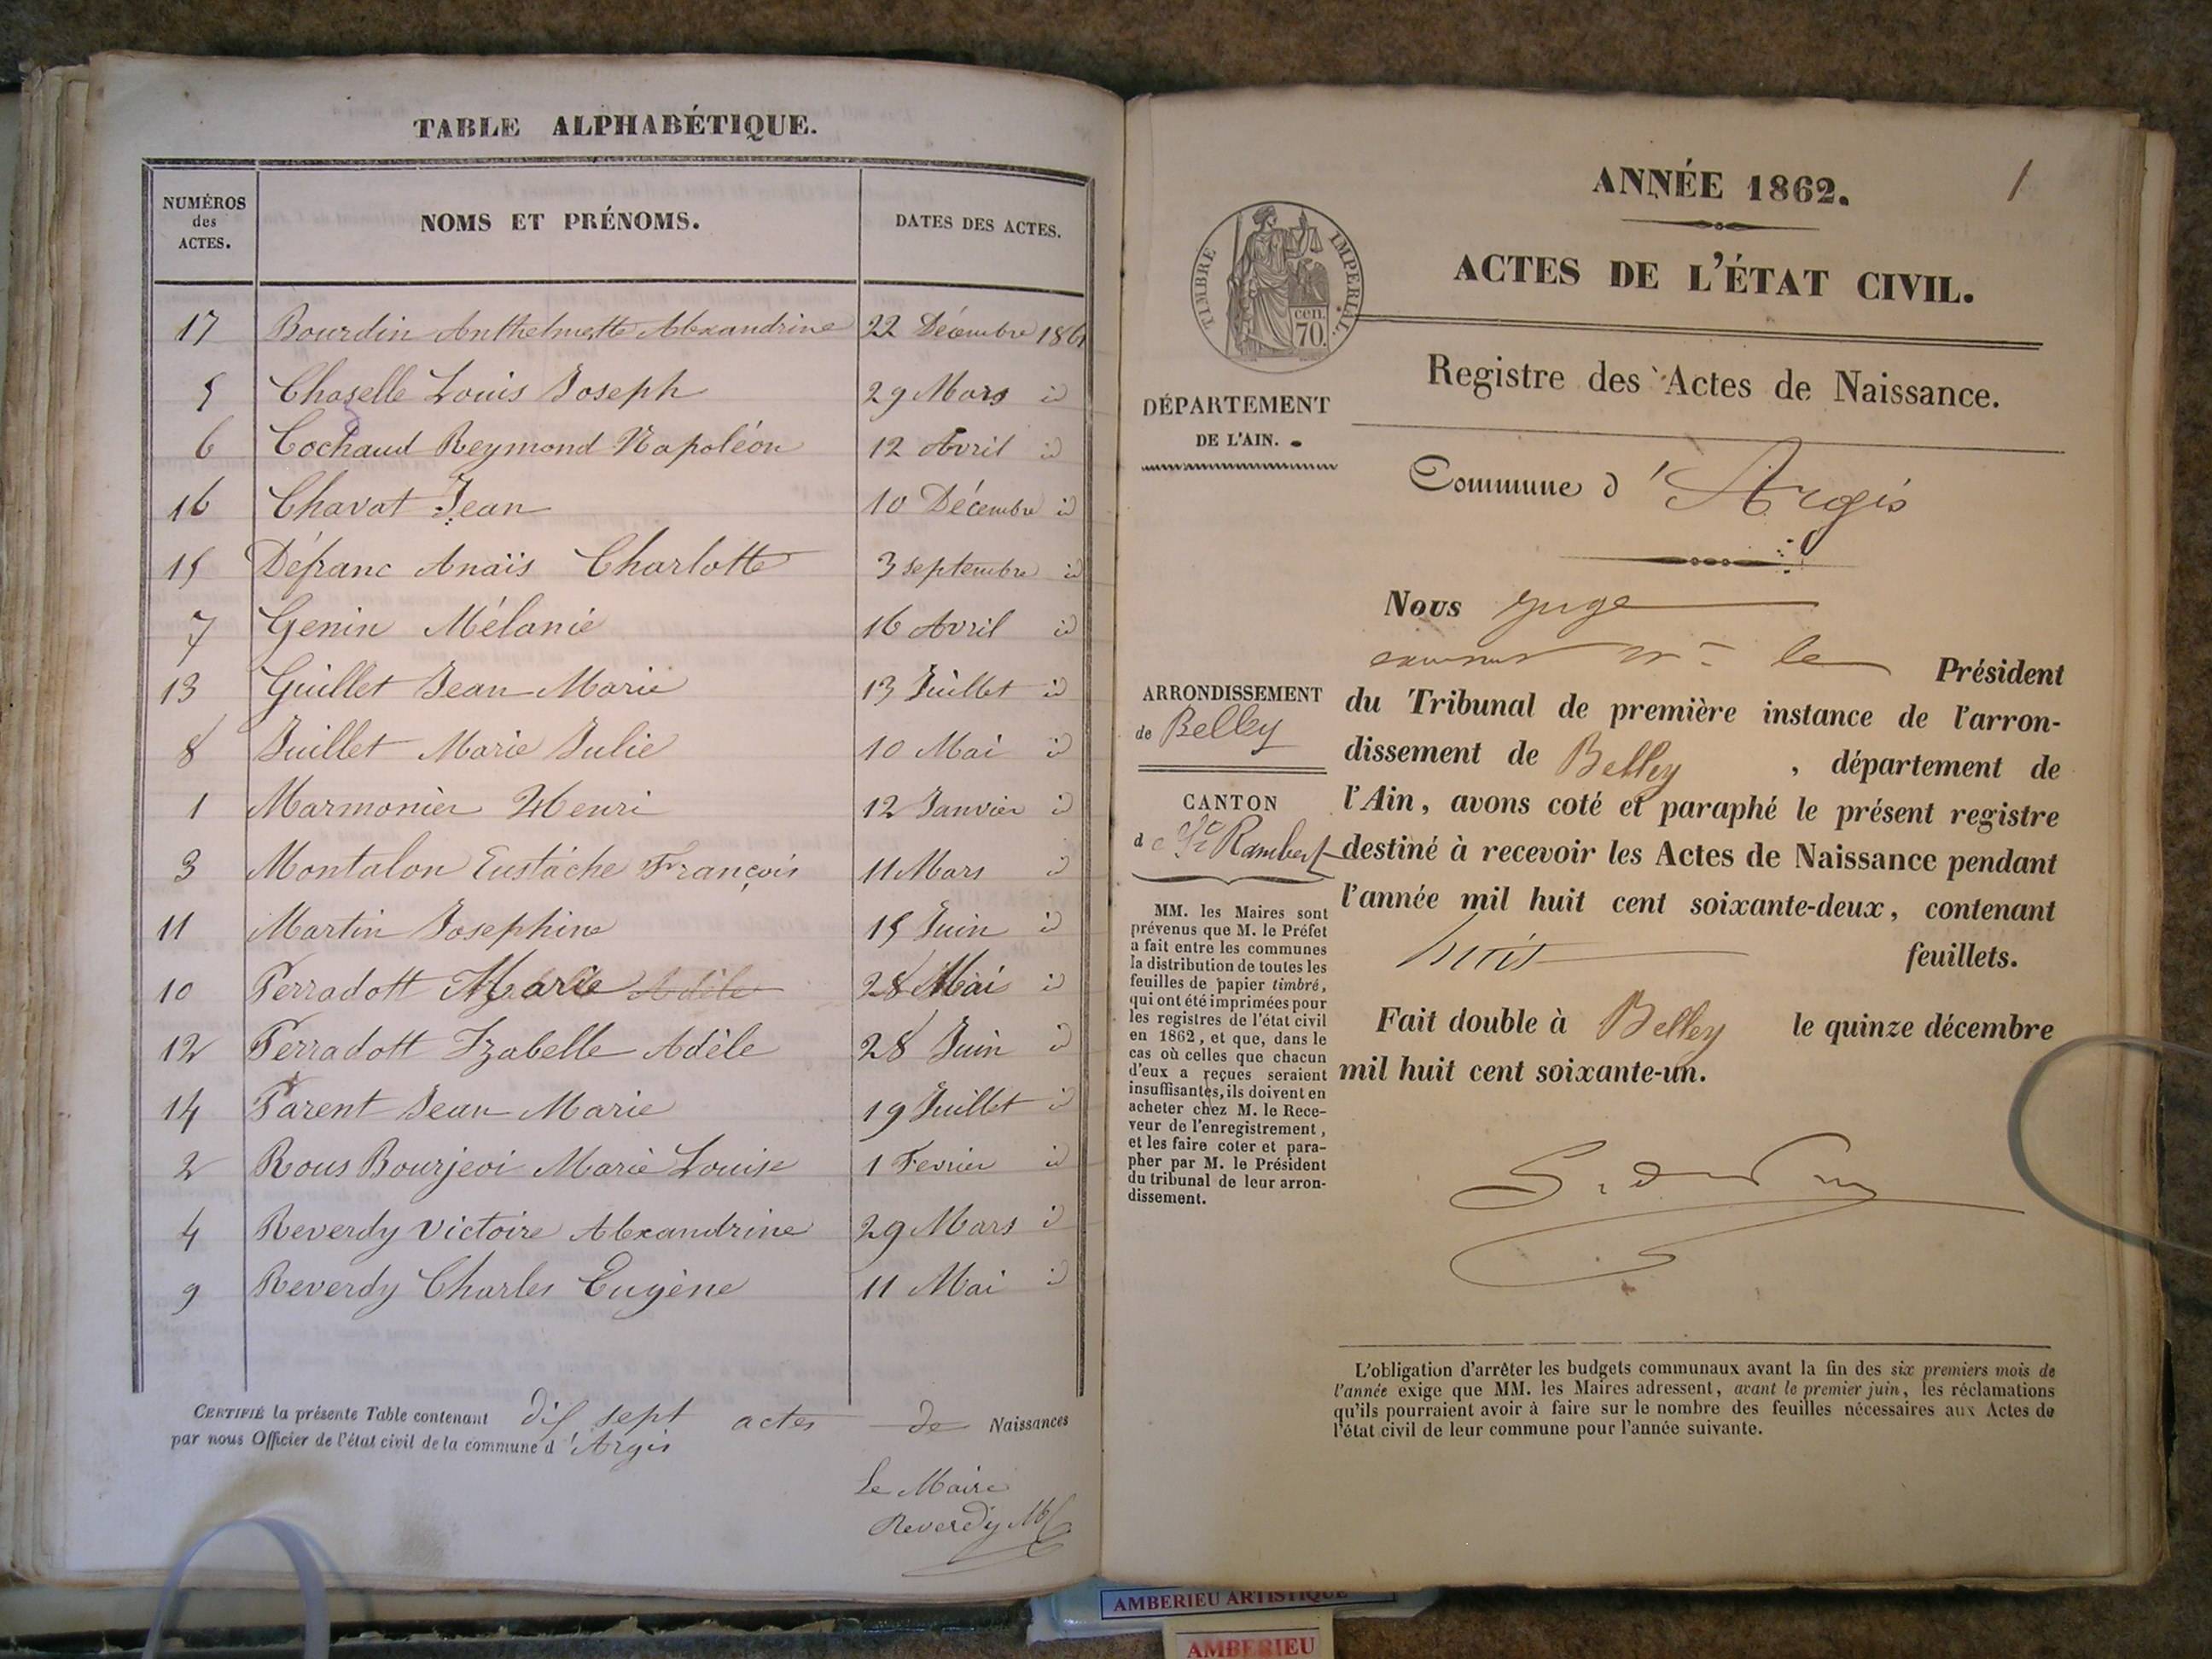 TABLE ALPHABÉTIQUE.
NUMÉROS des ACTES. NOMS ET PRÉNOMS. DATES DES ACTES.
17 Bourdin Anthelmette Alexandrine 22 Décembre 1861
5 Chaselle Louis Joseph 29 Mars id
6 Cochaud Reymond Napoléon 12 Avril id
16 Chavat Jean 10 Décembre id
15 Défranc Anaïs Charlotte 3 septembre id
7 Genin Mélanie 16 Avril id
13 Guillet Jean Marie 13 Juillet id
8 Juillet Marie Julie 10 Mai id
1 Marmonier Henri 12 Janvier id
3 Montalon Eustache François 11 Mars id
11 Martin Josephine 15 Juin id
10 Perradott Marie Adèle 28 Mai id
12 Perradott Izabelle Adèle 28 Juin id
14 Parent Jean Marie 19 Juillet id
2 Rous Bourjeoi Marie Louise 1 Fevrier id
4 Reverdy Victoire Alexandrine 29 Mars id
9 Reverdy Charles Eugène 11 Mai id
CERTIFIÉ la présente Table contenant dix sept actes de Naissances
par nous Officier de l'état civil de la commune d'Argis
Le Maire
Reverdy
1
ANNÉE 1862.
ACTES DE L'ÉTAT CIVIL.
TIMBRE IMPERIAL.
cen.
70.
Registre des Actes de Naissance.
DÉPARTEMENT
DE L'AIN.
Commune d'Argis
Nous juge
le Président
du Tribunal de première instance de l'arron-
dissement de Belley, département de
l'Ain, avons coté et paraphé le présent registre
destiné à recevoir les Actes de Naissance pendant
l'année mil huit cent soixante-deux, contenant
huit feuillets.
Fait double à Belley le quinze décembre
mil huit cent soixante-un.
ARRONDISSEMENT
de Belley
CANTON
de St Rambert
MM. les Maires sont
prévenus que M. le Préfet
a fait entre les communes
la distribution de toutes les
feuilles de papier timbré,
qui ont été imprimées pour
les registres de l'état civil
en 1862, et que, dans le
cas où celles que chacun
d'eux a reçues seraient
insuffisantes, ils doivent en
acheter chez M. le Rece-
veur de l'enregistrement,
et les faire coter et para-
pher par M. le Président
du tribunal de leur arron-
dissement.
L'obligation d'arrêter les budgets communaux avant la fin des six premiers mois de
l'année exige que MM. les Maires adressent, avant le premier juin, les réclamations
qu'ils pourraient avoir à faire sur le nombre des feuilles nécessaires aux Actes de
l'état civil de leur commune pour l'année suivante.
AMBERIEU ARTISTIQUE
AMBERIEU